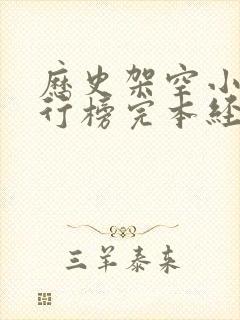 歷史架空小
行榜完本經
三羊泰来